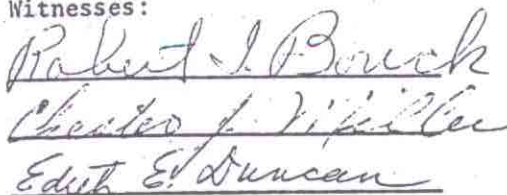 Witnesses:
Robert I. Bouck
Chester J. Miller
Edith E. Duncan